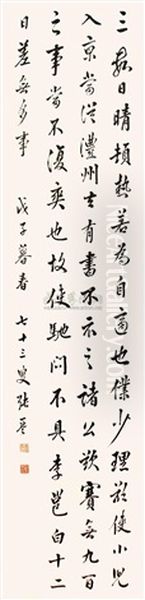 三數日晴頓熱善為自適也僕少理欲使小兒
入京當從澧州去有書不示之諸公欲賽無九百
之事當不復爽也故使馳問不具李邕白十二
日差無多事 戊子暮春 七十三叟張琴